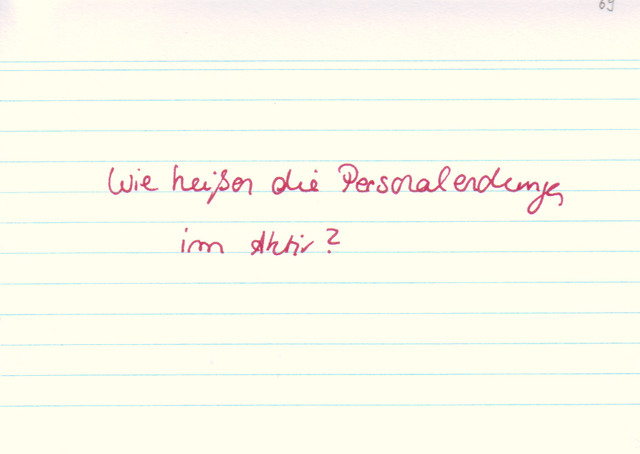 69
Wie heißen die Personalendungen
im Aktiv?